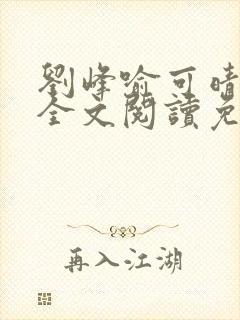 劉峰喻可晴
全文閱讀免
再入江湖